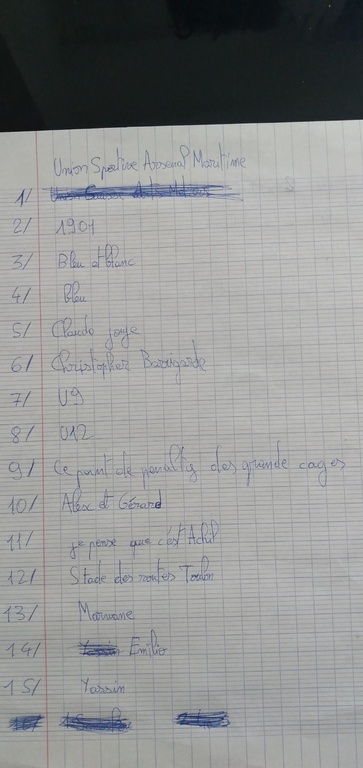 Union Sportive Arsenal Maritime
1/
2/ 1901
3/ Bleu et blanc
4/ Bleu
5/ Claude jorge
6/ Christopher Baougarde
7/ U9
8/ U12
9/ Ce point de penaltis des grande cages
10/ Alex et Gérard
11/ je pense que c'est Achil
12/ Stade des routes Toulon
13/ Marwane
14/ Emilio
15/ Yassin